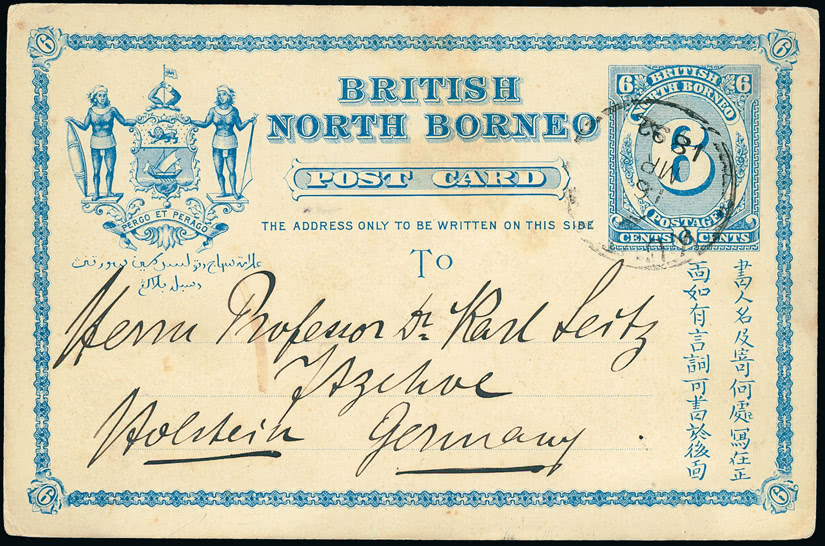 6
6
BRITISH
NORTH BORNEO
POST CARD
THE ADDRESS ONLY TO BE WRITTEN ON THIS SIDE
PERGO ET PERAGO
6 BRITISH 6
NORTH BORNEO
8
POSTAGE
6 CENTS CENTS
16
MR
92
TO
Herrn Professor Dr. Karl Seitz
Itzehoe
Holstein Germany.
書人名及寄何處寫在正
面如有言詞可書於後面
6
6